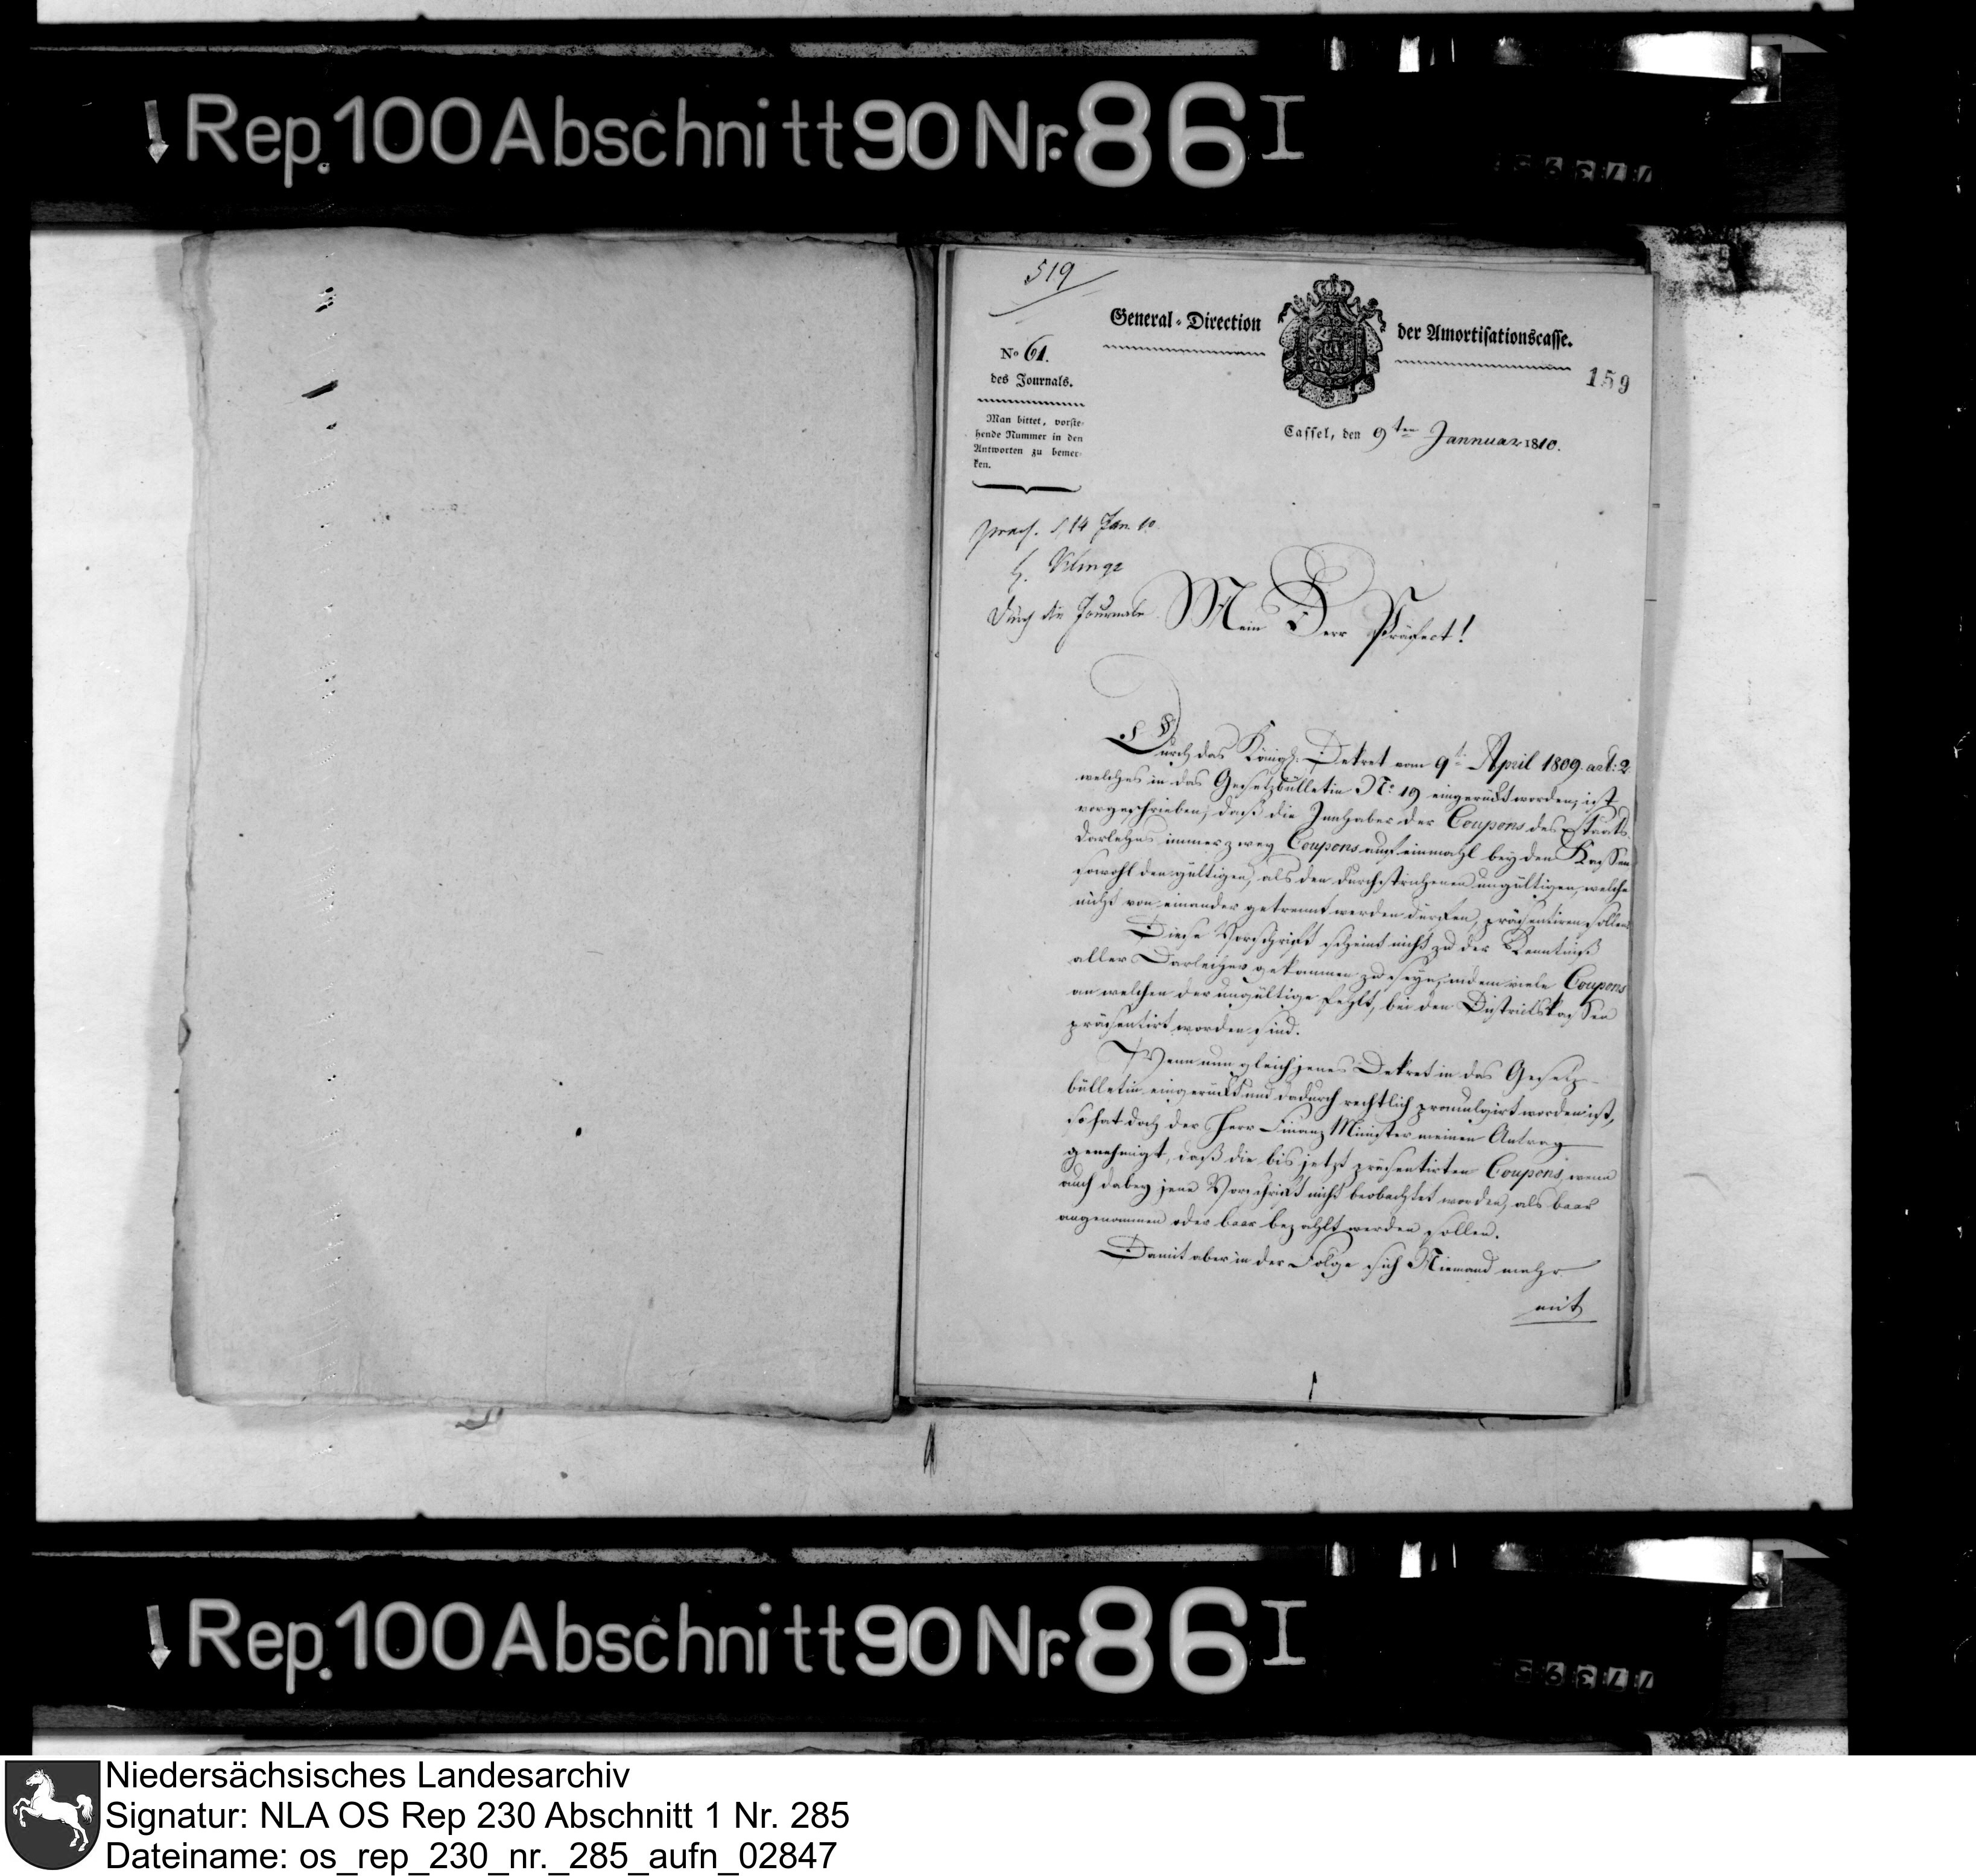 Rep. 100 Abschnitt 90 Nr. 86 I
77395
519
General-Direction der Amortisationscasse.
No 61.
des Journals.
159
Man bittet, vorste-
hende Nummer in den
Antworten zu bemer-
ken.
Cassel, den 9ten Jannuar 1810.
praes. d 14 Jan. 10.
Durch die Journale
Mein Herr Präfect!
Durch das Königl. Dekret vom 9t. April 1809. art: 2
welches in das Gesetzbülletin No: 19 eingerückt worden, ist
vorgeschrieben, daß die Innhaber der Coupons des Staats-
Darlehns immer zwey Coupons auf einmahl bey den Kassen
sowohl den gültigen, als den durchstrichenen ungültigen, welche
nicht von einander getrennt werden dürfen, präsentiren sollen
Diese Vorschrift scheint nicht zu der Kenntniß
aller Darleiher gekommen zu seyn, indem viele Coupons
an welchen der ungültige fehlt, bei den Districtskassen
präsentirt worden sind.
Wenn nun gleich jenes Dekret in das Gesetz-
bülletin eingerückt und dadurch rechtlich promulgirt worden ist,
so hat doch der Herr Finanz Minister meinen Antrag
genehmigt, daß die bis jetzt präsentirten Coupons, wenn
auch dabey jene Vorschrift nicht beobachtet worden, als baar
angenommen oder baar bezahlt werden sollen.
Damit aber in der Folge sich Niemand mehr
mit
Rep. 100 Abschnitt 90 Nr. 86 I
77395
Niedersächsisches Landesarchiv
Signatur: NLA OS Rep 230 Abschnitt 1 Nr. 285
Dateiname: os_rep_230_nr._285_aufn_02847